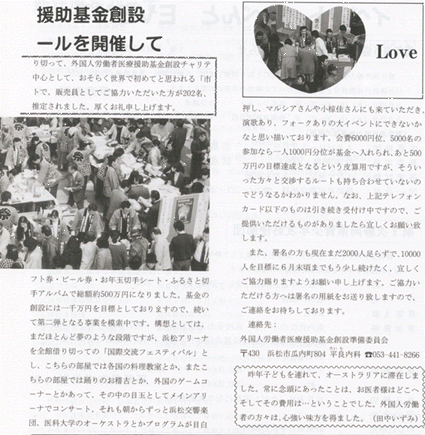 援助基金創設
ールを開催して
り切って、外国人労働者医療援助基金創設チャリテ
中心として、おそらく世界で初めてと思われる「市
トで、販売員としてご協力いただいた方が202名、
推定されました。厚くお礼申し上げます。
フト券・ビール券・お年玉切手シート・ふるさと切
手アルバムで総額約500万円になりました。基金の
創設には一千万円を目標としておりますので、続い
て第二弾となる事業を模索中です。構想としては、
まだほとんど夢のような段階ですが、浜松アリーナ
を全館借り切っての「国際交流フェスティバル」と
し、こちらの部屋では各国の料理教室とか、またこ
ちらの部屋では踊りのお稽古とか、外国のゲームコ
ーナーとかあって、その中の目玉としてメインアリ
ーナでコンサート、それも朝からずっと浜松交響楽
団、医科大学のオーケストラとかプログラムが目白
Love
押し、マルシアさんや小椋佳さんにも来ていただき、
演歌あり、フォークありの大イベントにできないか
なと思い描いております。会費6000円位、5000名の
参加なら一人1000円分位が基金へ入れられ、あと500
万円の目標達成となるという皮算用ですが、そうい
った方々と交渉するルートも持ち合わせていないの
でどうなるかわかりません。なお、上記テレフォン
カード以下のものは引き続き受付け中ですので、ご
提供いただけるものがありましたら宜しくお願い致
します。
また、署名の方も現在まだ2000人足らずで、10000
人を目標に6月末頃までもう少し続けたく、宜しく
ご協力賜りますようお願い申し上げます。ご協力い
ただける方へは署名の用紙をお送り致しますので、
ご連絡をお待ちしております。
連絡先：
外国人労働者医療援助基金創設準備委員会
〒430 浜松市瓜内町804 平良内科 ☎053-441-8266
昨年子どもを連れて、オーストラリアに滞在しま
した。常に念頭にあったことは、お医者様はどこへ
そしてその費用は…ということでした。外国人労働
者の方々は、心強い味方を得ました。（田中いずみ）